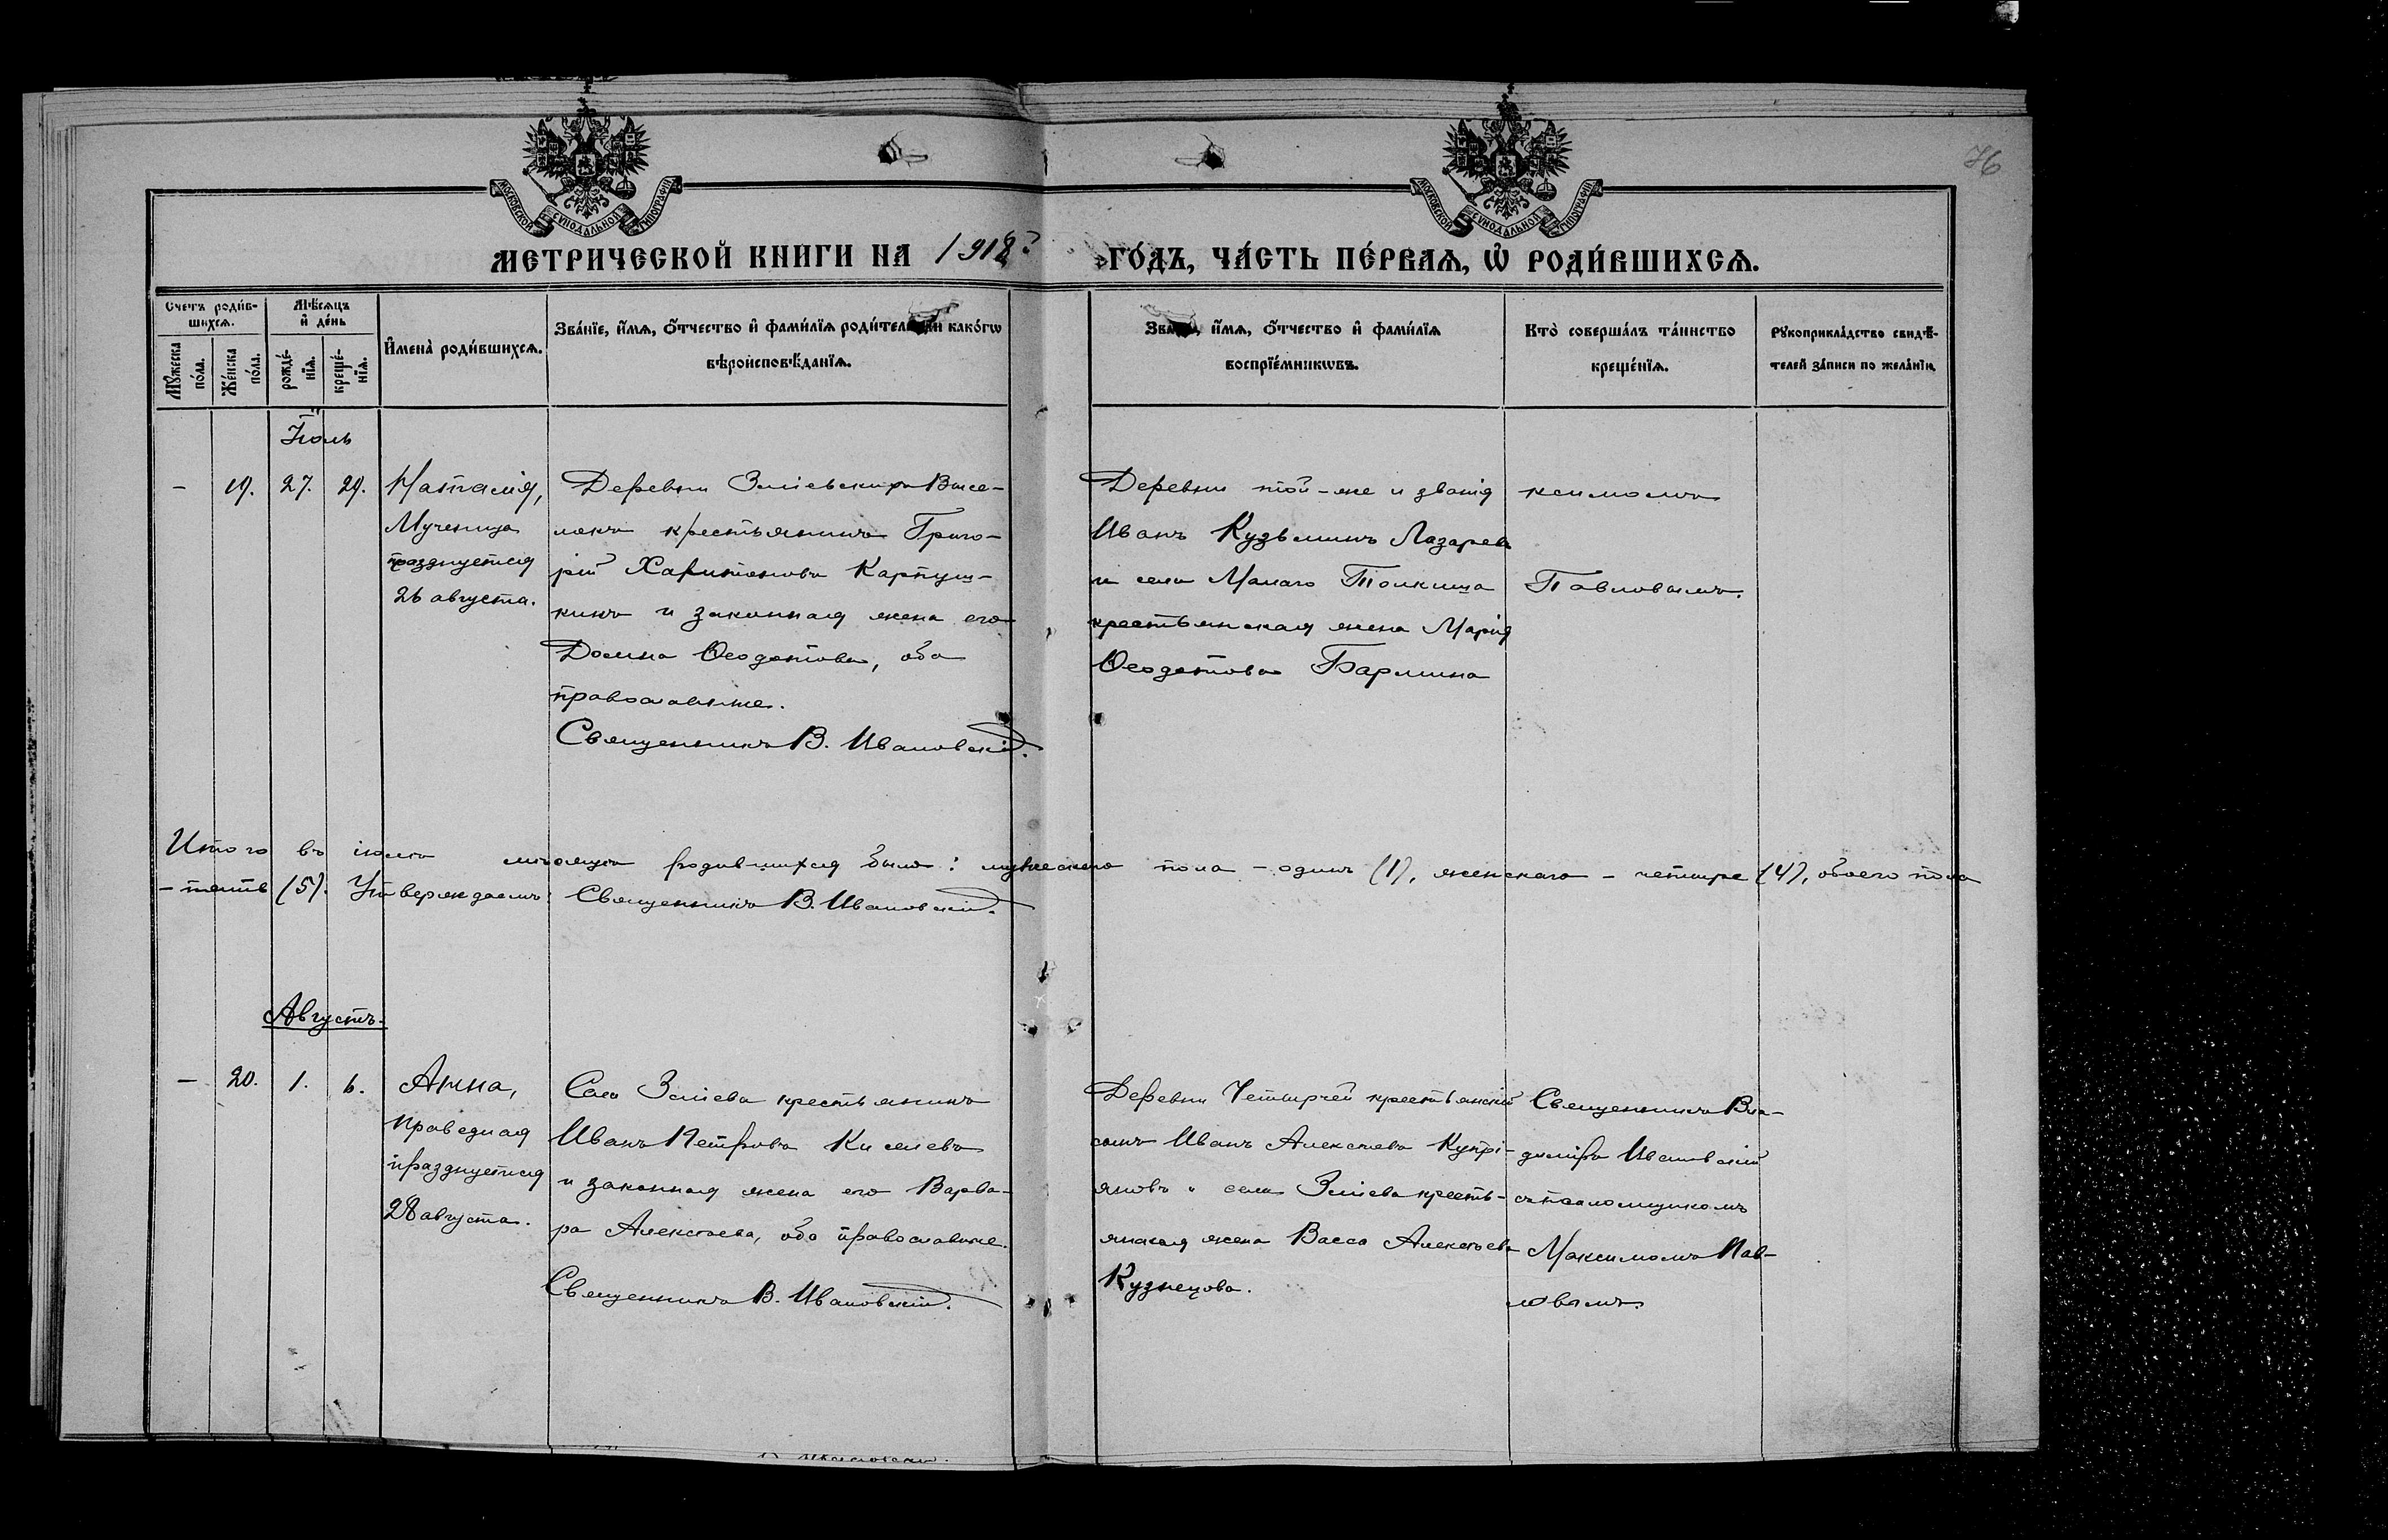 76
МОСКОВСКОЙ СѴНОДАЛЬНОЙ ТИПОГРАФІИ
МОСКОВСКОЙ СѴНОДАЛЬНОЙ ТИПОГРАФІИ
МЕТРИЧЕСКОЙ КНИГИ НА 1912 ГО́ДЪ, ЧА́СТЬ ПЕ́РВАѦ, Ѡ҆ РОДИ́ВШИХСѦ.
Счетъ роди́в-
шихсѧ.
Мѣсѧцъ
и҆ де́нь
Мꙋ́жеска
по́ла.
Же́нска
по́ла.
рожде́-
нїѧ.
креще́-
нїѧ.
И҆мена̀ роди́вшихсѧ.
Зва́нїе, и҆́мѧ, ѻ҆́тчество и҆ фами́лїѧ роди́телей и како́гѡ
вѣроисповѣ́данїѧ.
Зва́нїе, и҆́мѧ, ѻ҆́тчество и҆ фами́лїѧ
воспрїе́мникѡвъ.
Кто̀ соверша́лъ та́инство
креще́нїѧ.
Рꙋкоприкла́дство свидѣ́-
телей за́писи по жела́нїю.
Іюль
- 19. 27. 29.
Наталія,
Мученица
празднуется
26 августа.
Деревни Зміевскихъ Высе-
локъ крестьянинъ Григо-
рій Харитоновъ Карпуш-
кинъ и законная жена его
Домна Ѳеодотова, оба
православные.
Священникъ В. Ивановскій.
Деревни той-же и званія
Иванъ Кузьминъ Лазаревъ
и села Малаго Толкиша
крестьянская жена Марія
Ѳеодотова Бармина
ксимомъ
Павловымъ.
Итого въ іюлѣ мѣсяцѣ родившихся было: мужескаго пола - одинъ (1), женскаго - четыре (4), обоего пола
- пять (5). Утверждаемъ: Священникъ В. Ивановскій.
Августъ.
- 20. 1. 6.
Анна,
праведная
празднуется
28 августа.
Села Зміева крестьянинъ
Иванъ Петровъ Киселевъ
и законная жена его Варва-
ра Алексѣева, оба православные.
Священникъ В. Ивановскій.
Деревни Четырчей крестьянскій
сынъ Иванъ Алексѣевъ Купрі-
яновъ и села Зміева кресть-
янская жена Васса Алексѣева
Кузнецова.
Священникъ Вла-
диміръ Ивановскій
съ псаломщикомъ
Максимомъ Пав-
ловымъ.